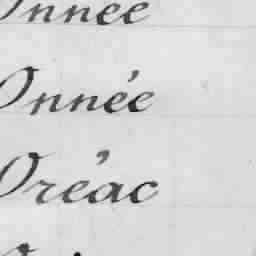 Onnée
Onnée
Oréac